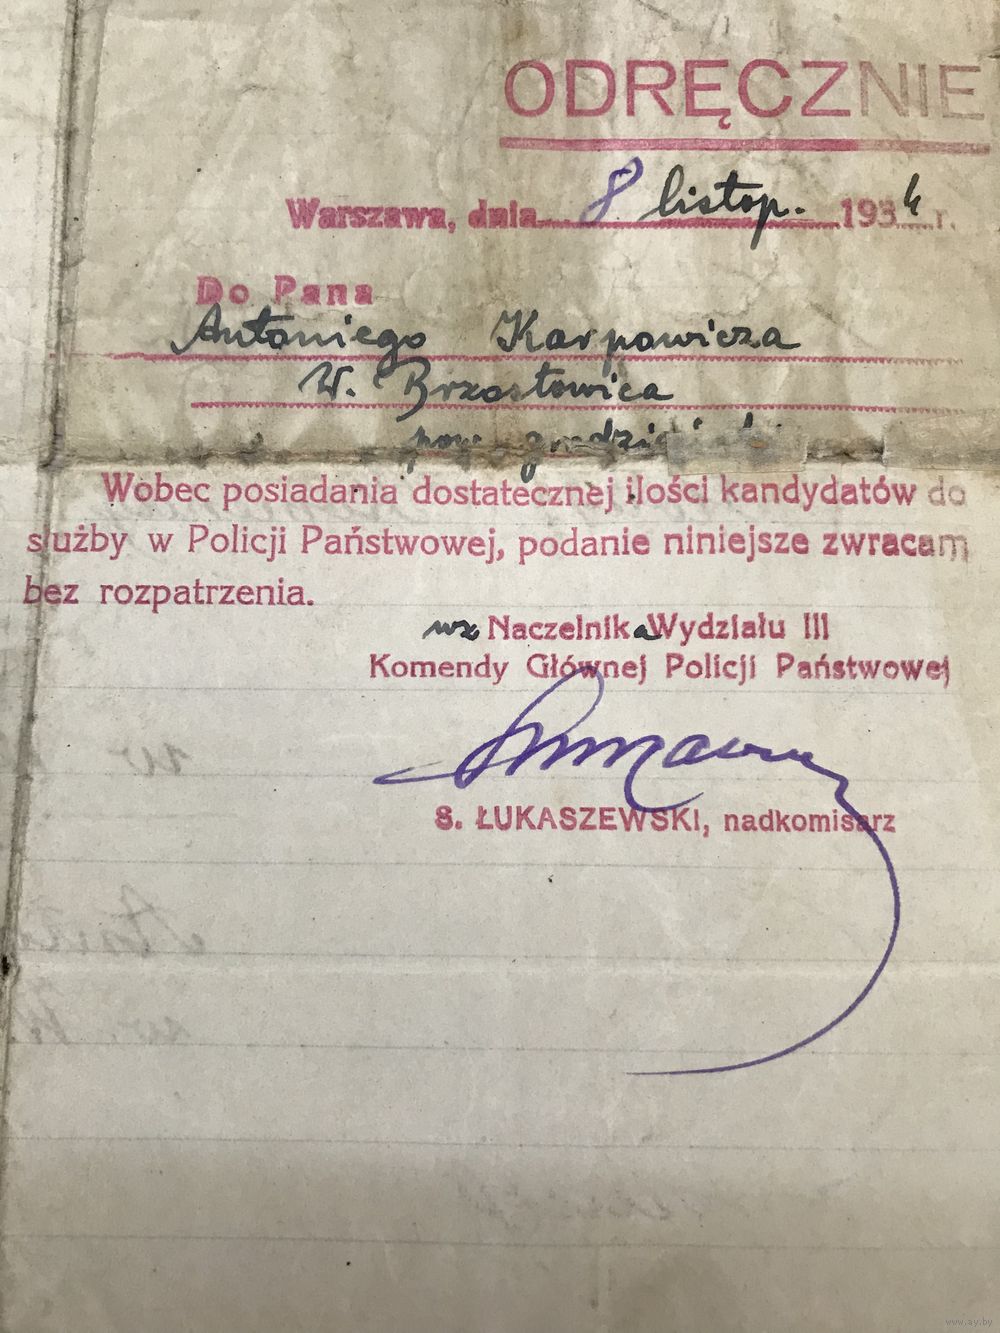 ODRĘCZNIE
Warszawa, dnia 8 listop. 1934 r.
Do Pana
Antoniego Karpowicza
W. Brzostowica
pow.
Wobec posiadania dostatecznej ilości kandydatów do
służby w Policji Państwowej, podanie niniejsze zwracam
bez rozpatrzenia.
wz Naczelnika Wydziału III
Komendy Głównej Policji Państwowej
S. ŁUKASZEWSKI, nadkomisarz
www.ay.by